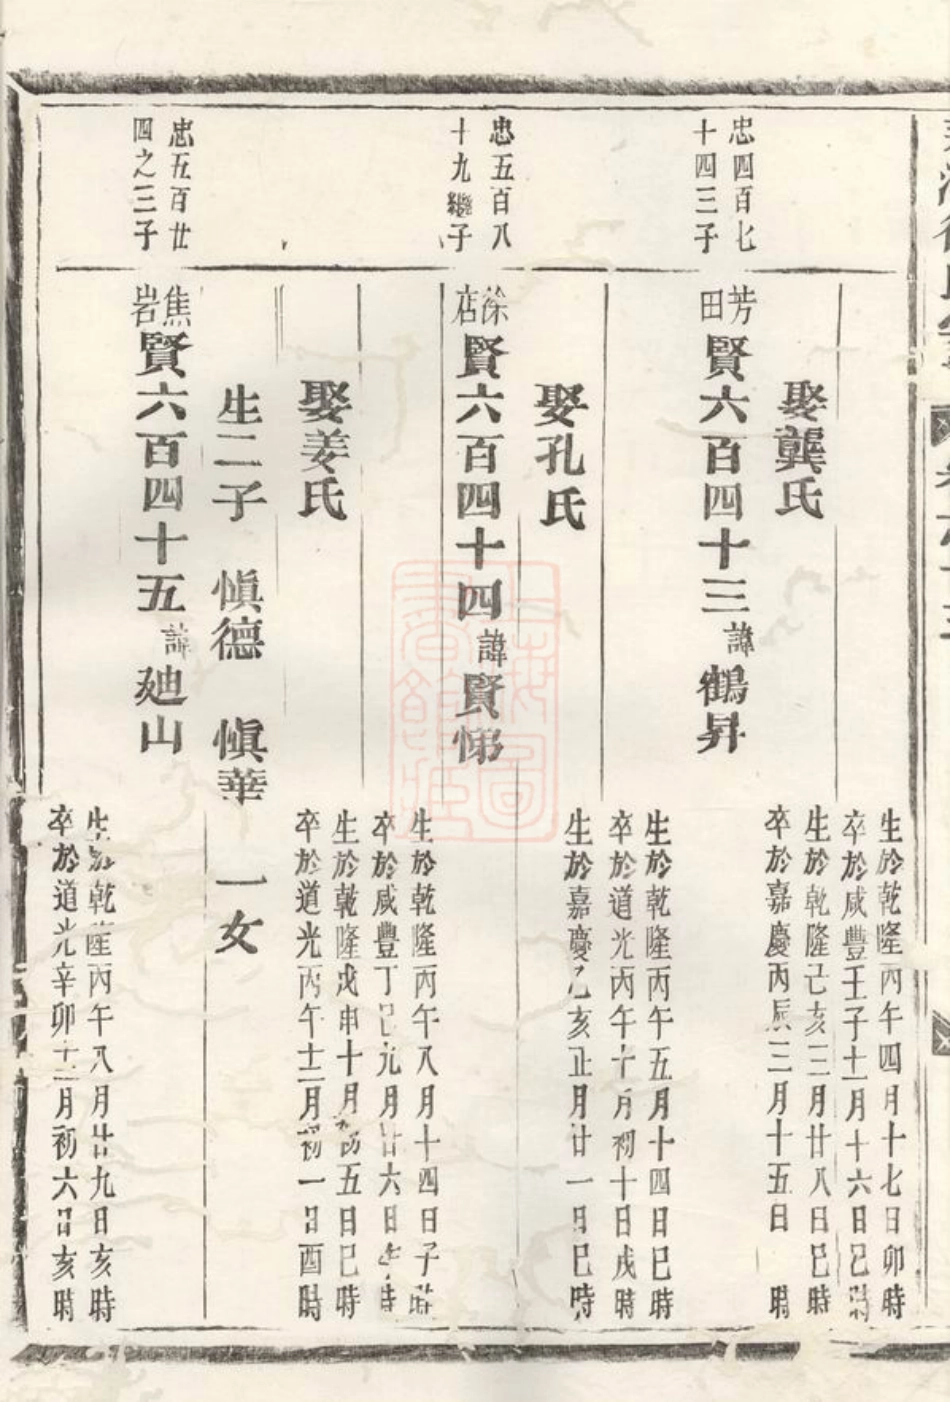 忠四百七
十四三子
芳田
賢六百四十三諱鶴昇
生於乾隆丙午四月十七日卯時
卒於咸豐壬子十一月十六日巳時
娶龔氏
生於乾隆己亥三月廿八日巳時
卒於嘉慶丙辰三月十五日 時
忠五百八
十九繼子
徐店
賢六百四十四諱賢悌
生於乾隆丙午五月十四日巳時
卒於道光丙午十月初十日戌時
娶孔氏
生於嘉慶乙亥正月廿一日巳時
生於乾隆丙午八月十四日子時
卒於咸豐丁巳九月廿六日 時
娶姜氏
生於乾隆戊申十月初五日巳時
卒於道光丙午十二月初一日酉時
生二子 愼德 愼華 一女
忠五百廿
四之三子
焦岩
賢六百四十五諱廸山
生於乾隆丙午八月廿九日亥時
卒於道光辛卯十二月初六日亥時